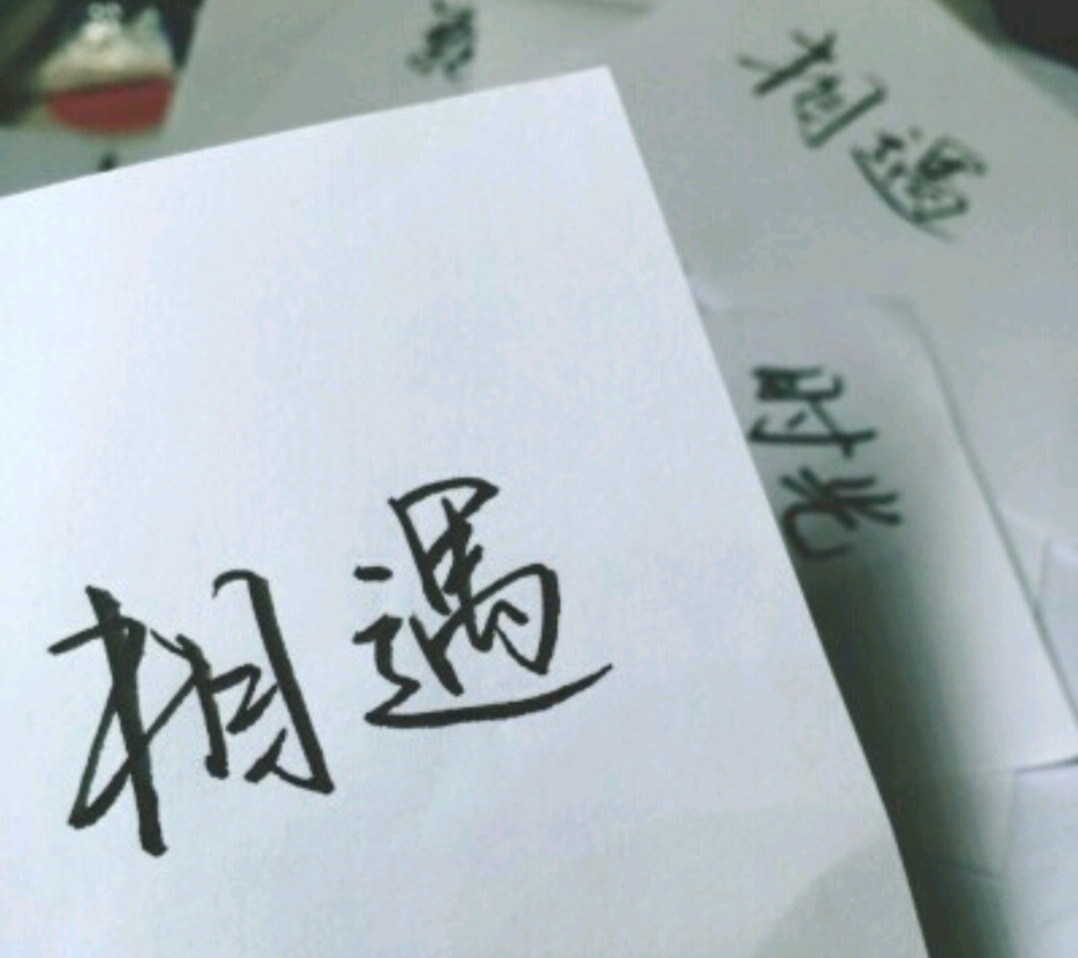 相遇
时光
相遇